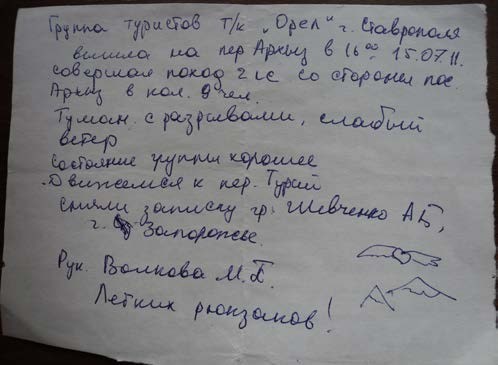 Группа туристов т/к "Орел" г. Ставрополя
вышла на пер Архыз в 16 00 15.07.11.
совершая поход 2 кс со стороны пос.
Архыз в кол. 9 чел.
Туман с разрывами, слабый
ветер
состояние группы хорошее
Движемся к пер. Турий
сняли записку гр. Шевченко А Б,
г. Запорожье.
Рук. Волкова М.П.
Легких рюкзаков!